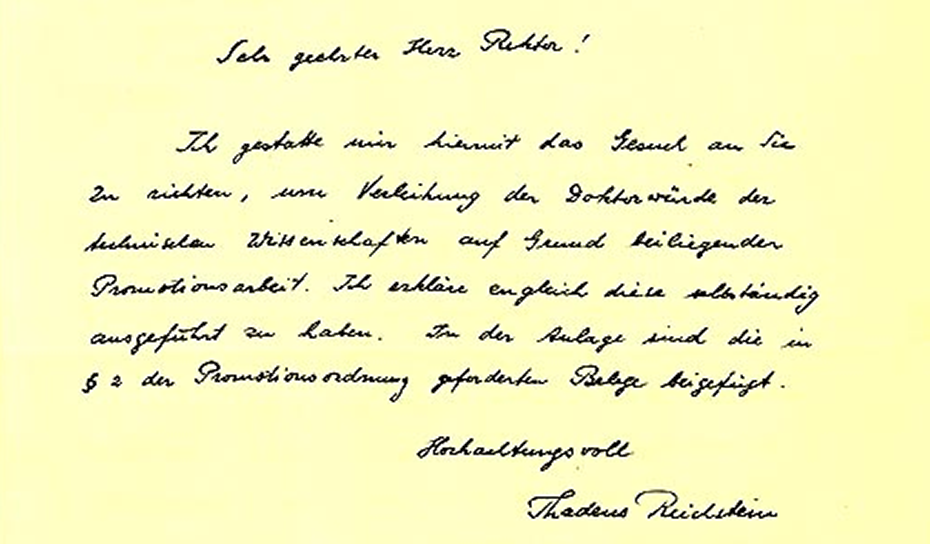 Sehr geehrter Herr Rektor!
Ich gestatte mir hiermit das Gesuch an Sie
zu richten, um Verleihung der Doktorwürde der
technischen Wissenschaften auf Grund beiliegender
Promotionsarbeit. Ich erkläre zugleich diese selbständig
ausgeführt zu haben. In der Anlage sind die in
§ 2 der Promotionsordnung geforderten Belege beigefügt.
Hochachtungsvoll
Thadeus Reichstein